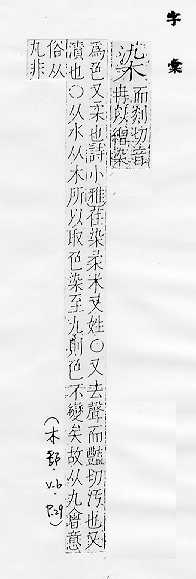 字彙
染
而剡切音
冉以繒染
為色又柔也詩小雅荏染柔木又姓○又去聲而豔切汚也又
漬也○从水从木所以取色染至九則色不變矣故从九會意
俗从
丸非
(木部.V.6.P.29)